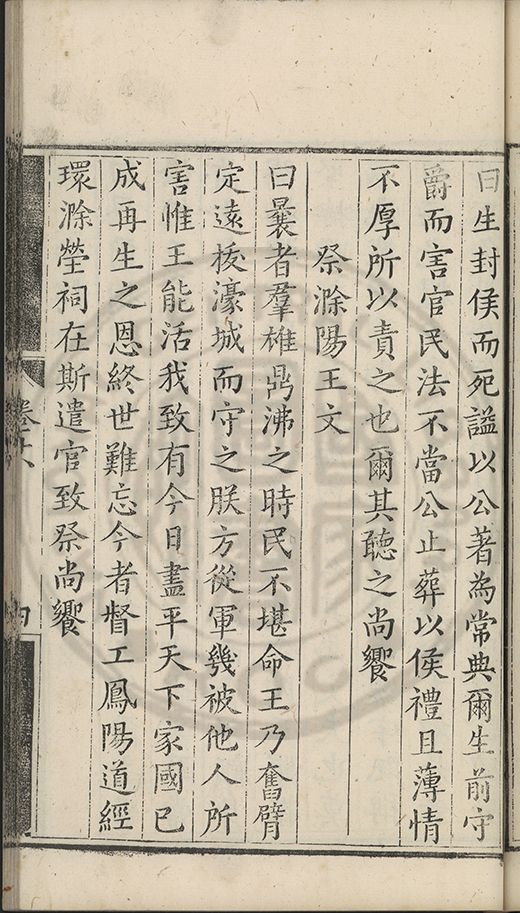 曰生封侯而死謚以公著為常典爾生前守
爵而害官民法不當公止葬以侯禮且薄情
不厚所以責之也爾其聽之尚饗
祭滁陽王文
曰曩者羣雄鼎沸之時民不堪命王乃奮臂
定遠拔濠城而守之朕方從軍幾被他人所
害惟王能活我致有今日盡平天下家國已
成再生之恩終世難忘今者督工鳳陽道經
環滁塋祠在斯遣官致祭尚饗
卷十八